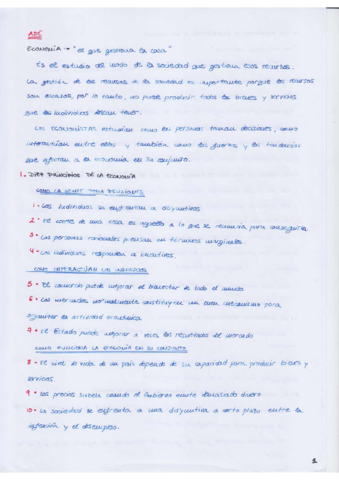 ADE
ECONOMÍA → "el que gestiona la casa"
Es el estudio del modo de la sociedad que gestiona esos recursos.
La gestión de los recursos de la sociedad es importante porque los recursos
son escasos, por lo tanto, no puede producir todos los bienes y servicios
que los individuos desean tener.
Los economistas estudian como las personas toman decisiones, como
interactúan entre ellos y también como las fuerzas y las tendencias
que afectan a la economía en su conjunto.
1. DIEZ PRINCIPIOS DE LA ECONOMÍA
COMO LA GENTE TOMA DECISIONES
1 • Los individuos se enfrentan a disyuntivas
2 • el coste de una cosa es aquello a lo que se renuncia para conseguirla
3 • Las personas racionales piensan en términos marginales
4 • Los individuos responden a incentivos
COMO INTERACTÚAN LOS INDIVIDUOS
5 • El comercio puede mejorar el bienestar de todo el mundo
6 • Los mercados normalmente constituyen un buen mecanismo para
organizar la actividad económica
7 • el Estado puede mejorar a veces los resultados del mercado
COMO FUNCIONA LA ECONOMÍA EN SU CONJUNTO
8 • el nivel de vida de un país depende de su capacidad para producir bienes y
servicios.
9 • Los precios suben cuando el gobierno emite demasiado dinero
10 • La sociedad se enfrenta a una disyuntiva a corto plazo entre la
inflación y el desempleo.
1